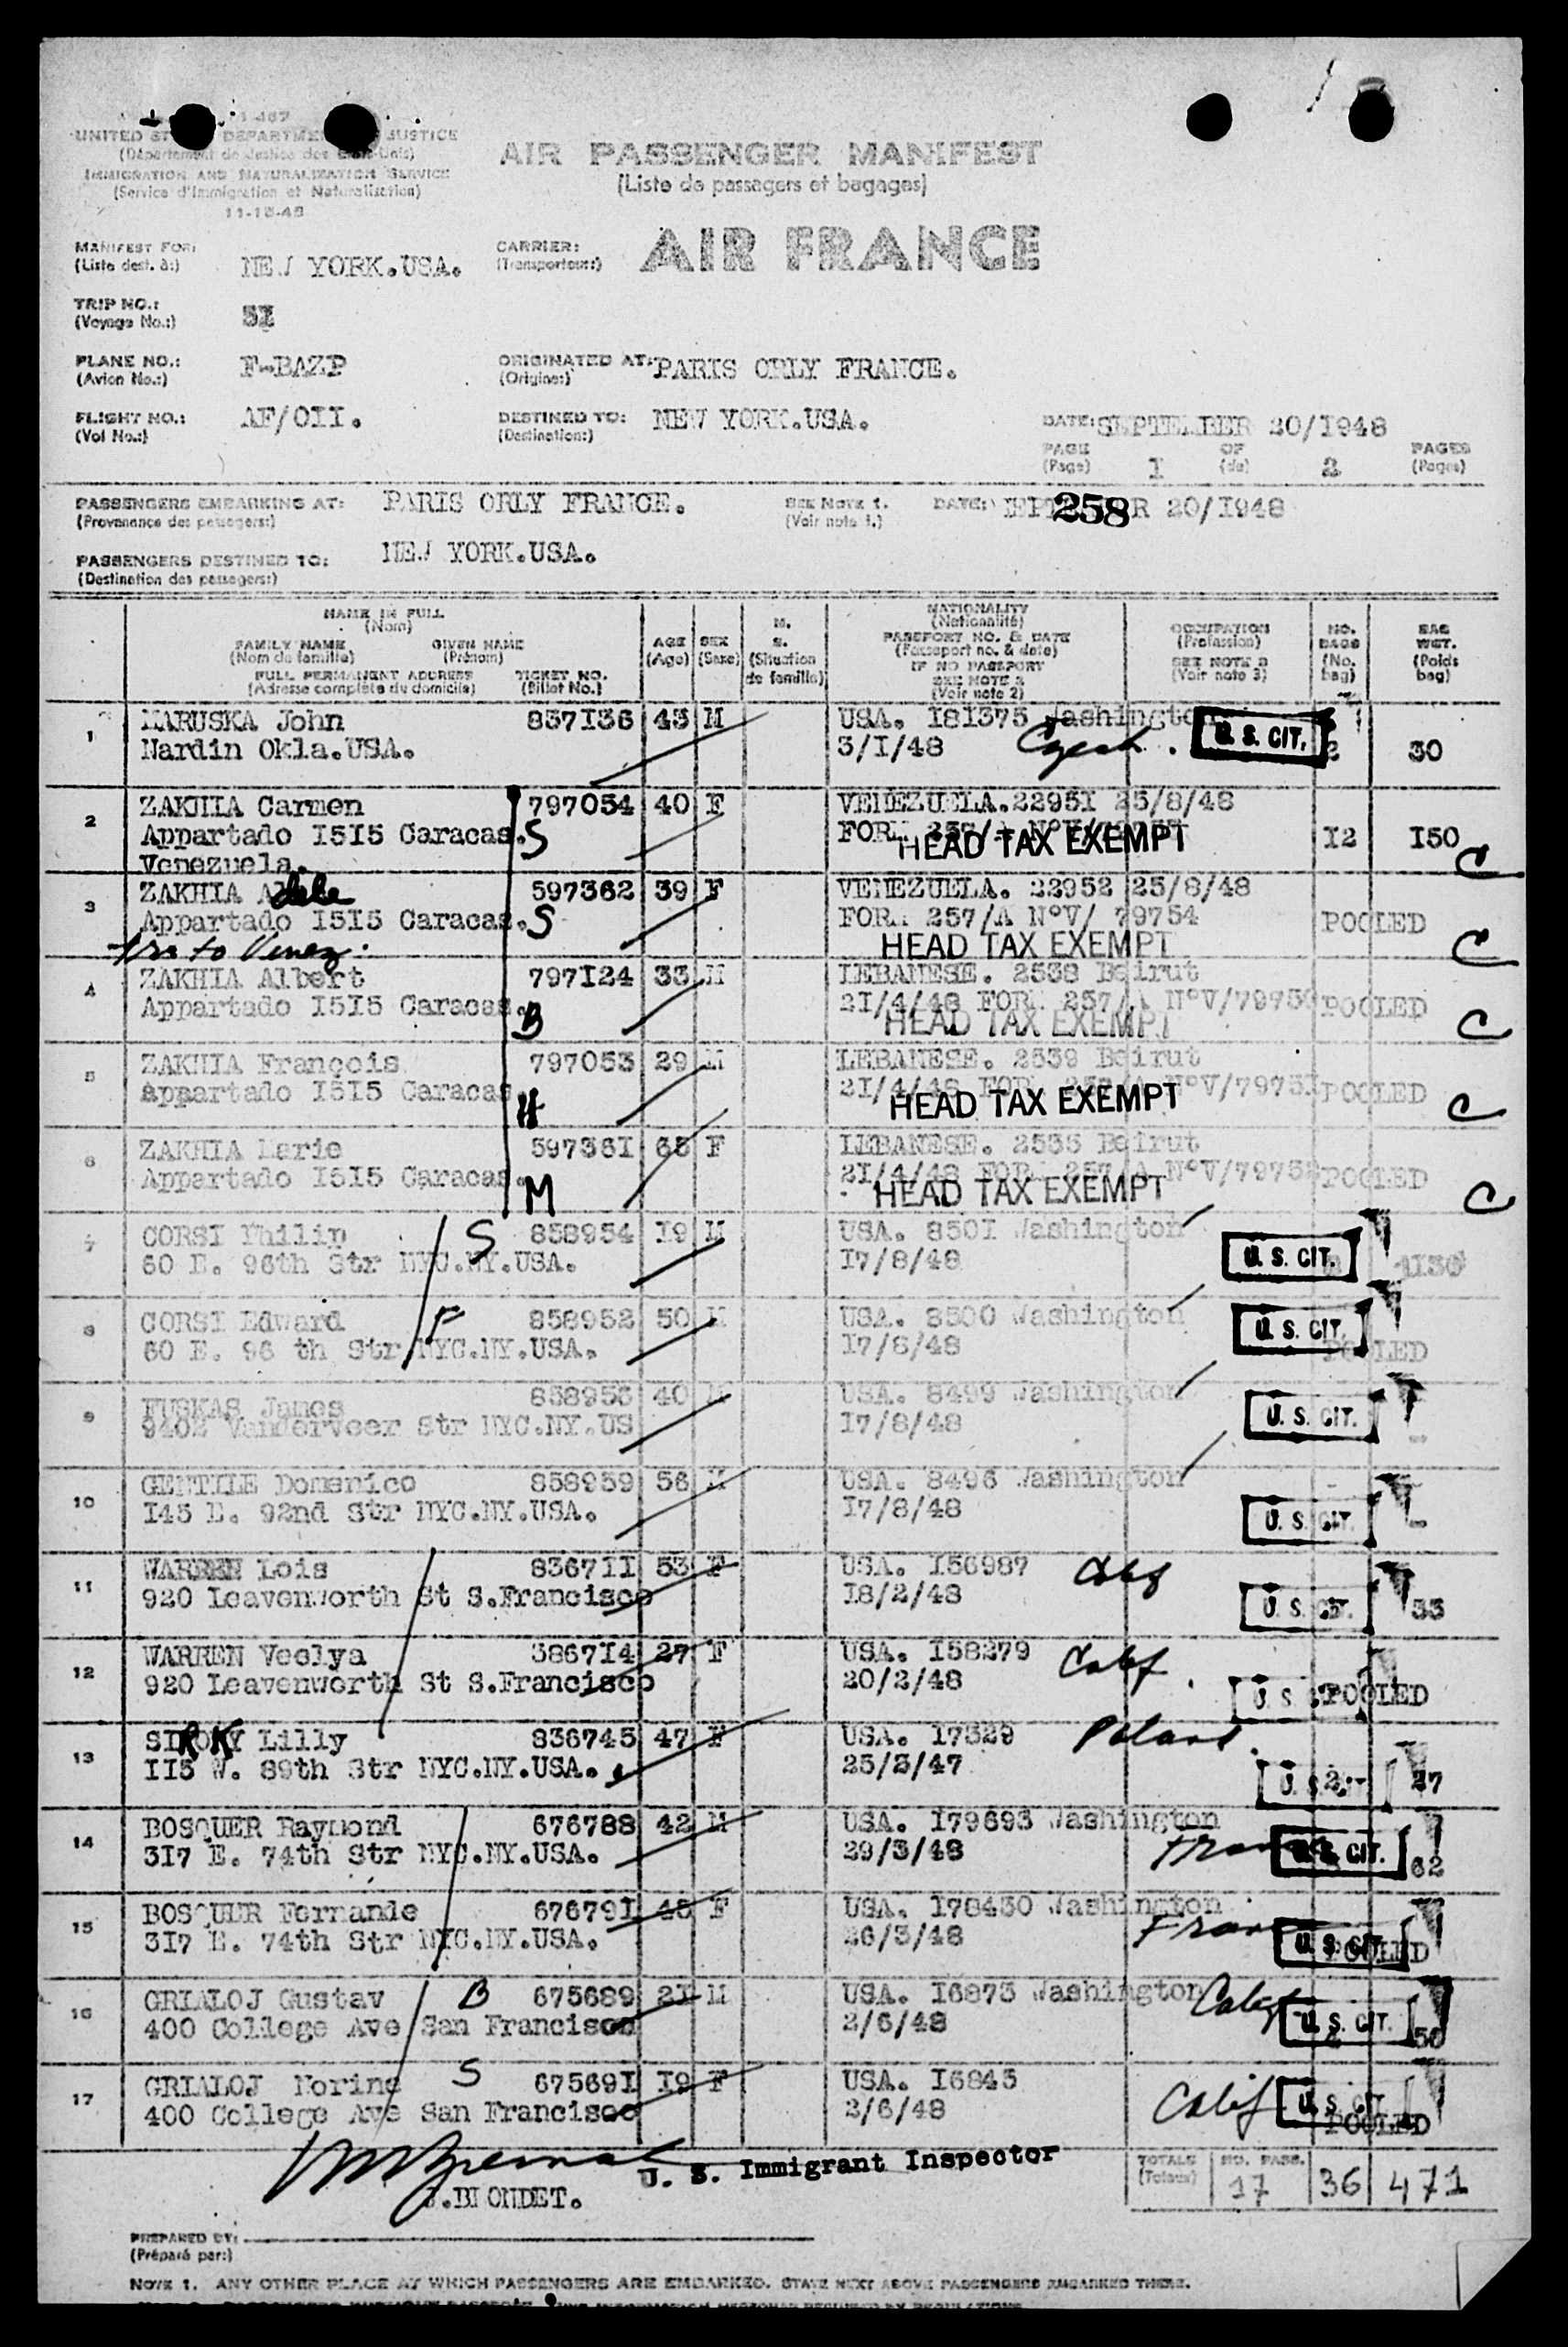 UNITED DEPARTMENT JUSTICE
(Département de Justice des Etats-Unis)
IMMIGRATION AND NATURALIZATION SERVICE
(Service d'Immigration et Naturalisation)
11-15-48
AIR PASSENGER MANIFEST
(Liste de passagers et bagages)
MANIFEST FOR: NEW YORK.USA.
(Liste dest. à:)
CARRIER: AIR FRANCE
(Transporteur:)
TRIP NO.: 5I
(Voyage No.:)
PLANE NO.: F-BAZP
(Avion No.:)
ORIGINATED AT: PARIS ORLY FRANCE.
(Origine:)
FLIGHT NO.: AF/OII.
(Vol No.:)
DESTINED TO: NEW YORK.USA.
(Destination:)
DATE: SEPTEMBER 20/I948
PAGE I OF 2 PAGES
(Page) (de) (Pages)
PASSENGERS EMBARKING AT: PARIS ORLY FRANCE.
(Provenance des passagers:)
SEE NOTE 1. DATE: 258 R 20/I948
(Voir note 1.)
PASSENGERS DESTINED TO: NEW YORK.USA.
(Destination des passagers:)
NAME IN FULL
(Nom)
FAMILY NAME GIVEN NAME
(Nom de famille) (Prénom)
FULL PERMANENT ADDRESS TICKET NO.
(Adresse complète du domicile) (Billet No.)
AGE
(Age)
SEX
(Sexe)
M.
S.
(Situation
de famille)
NATIONALITY
(Nationalité)
PASSPORT NO. & DATE
(Passeport no. & date)
IF NO PASSPORT
SEE NOTE 2
(Voir note 2)
OCCUPATION
(Profession)
SEE NOTE 3
(Voir note 3)
NO.
BAGS
(No.
bag)
BAG
WGT.
(Poids
bag)
1 MARUSKA John 837I36 43 M USA. I8I375 Washington
Nardin Okla.USA. 3/I/48 Czech. U. S. CIT. 2 30
2 ZAKHIA Carmen 797054 40 F VENEZUELA.2295I 25/8/48
Appartado I5I5 Caracas. S FORM HEAD TAX EXEMPT I2 I50 C
Venezuela.
3 ZAKHIA Adele 597362 39 F VENEZUELA. 22952 25/8/48
Appartado I5I5 Caracas. S FORM 257/A N°V/ 79754 POOLED
trs to Venez. HEAD TAX EXEMPT C
4 ZAKHIA Albert 797I24 33 M LEBANESE. 2538 Beirut
Appartado I5I5 Caracas. B 2I/4/48 FORM 257/A N°V/79750 POOLED
HEAD TAX EXEMPT C
5 ZAKHIA François 797053 29 M LEBANESE. 2539 Beirut
Appartado I5I5 Caracas H 2I/4/48 FORM 257/A N°V/7975I POOLED
HEAD TAX EXEMPT C
6 ZAKHIA Marie 59736I 65 F LEBANESE. 2535 Beirut
Appartado I5I5 Caracas. M 2I/4/48 FORM 257/A N°V/79752 POOLED
HEAD TAX EXEMPT C
7 CORSI Philip S 858954 I9 M USA. 850I Washington
60 E. 96th Str NYC.NY.USA. I7/8/48 U. S. CIT.
8 CORSI Edward F 858952 50 M USA. 8500 Washington
60 E. 96 th Str NYC.NY.USA. I7/8/48 U. S. CIT. POOLED
9 FUSKAS James 858953 40 M USA. 8499 Washington
9402 Vanderveer Str NYC.NY.US I7/8/48 U. S. CIT. -
10 GENTILE Domenico 858959 56 M USA. 8496 Washington
I45 E. 92nd Str NYC.NY.USA. I7/8/48 U. S. CIT. -
11 WARREN Lois 8367II 53 F USA. I56987 Calif
920 Leavenworth St S.Francisco I8/2/48 U. S. CIT. 33
12 WARREN Veelya 3867I4 27 F USA. I58279 Calif.
920 Leavenworth St S.Francisco 20/2/48 U. S. POOLED
13 SIROKY Lilly 836745 47 F USA. I7329 Poland.
II5 W. 89th Str NYC.NY.USA. 25/3/47 U. S. CIT 2 27
14 BOSQUER Raymond 676788 42 M USA. I79693 Washington
3I7 E. 74th Str NYC.NY.USA. 29/3/48 France U. S. CIT. 62
15 BOSQUER Fernande 67679I 45 F USA. I78430 Washington
3I7 E. 74th Str NYC.NY.USA. 26/3/48 France U. S. CIT. POOLED
16 GRIALOJ Gustav B 675689 2I M USA. I6873 Washington Calif
400 College Ave San Francisco 2/6/48 U. S. CIT. 50
17 GRIALOJ Norine S 67569I I9 F USA. I6845
400 College Ave San Francisco 2/6/48 Calif U. S. CIT. POOLED
U. S. Immigrant Inspector
BLONDET.
TOTALS NO. PASS.
(Totaux) 17 36 471
PREPARED BY:
(Préparé par:)
NOTE 1. ANY OTHER PLACE AT WHICH PASSENGERS ARE EMBARKED. STATE NEXT ABOVE PASSENGERS EMBARKED THERE.